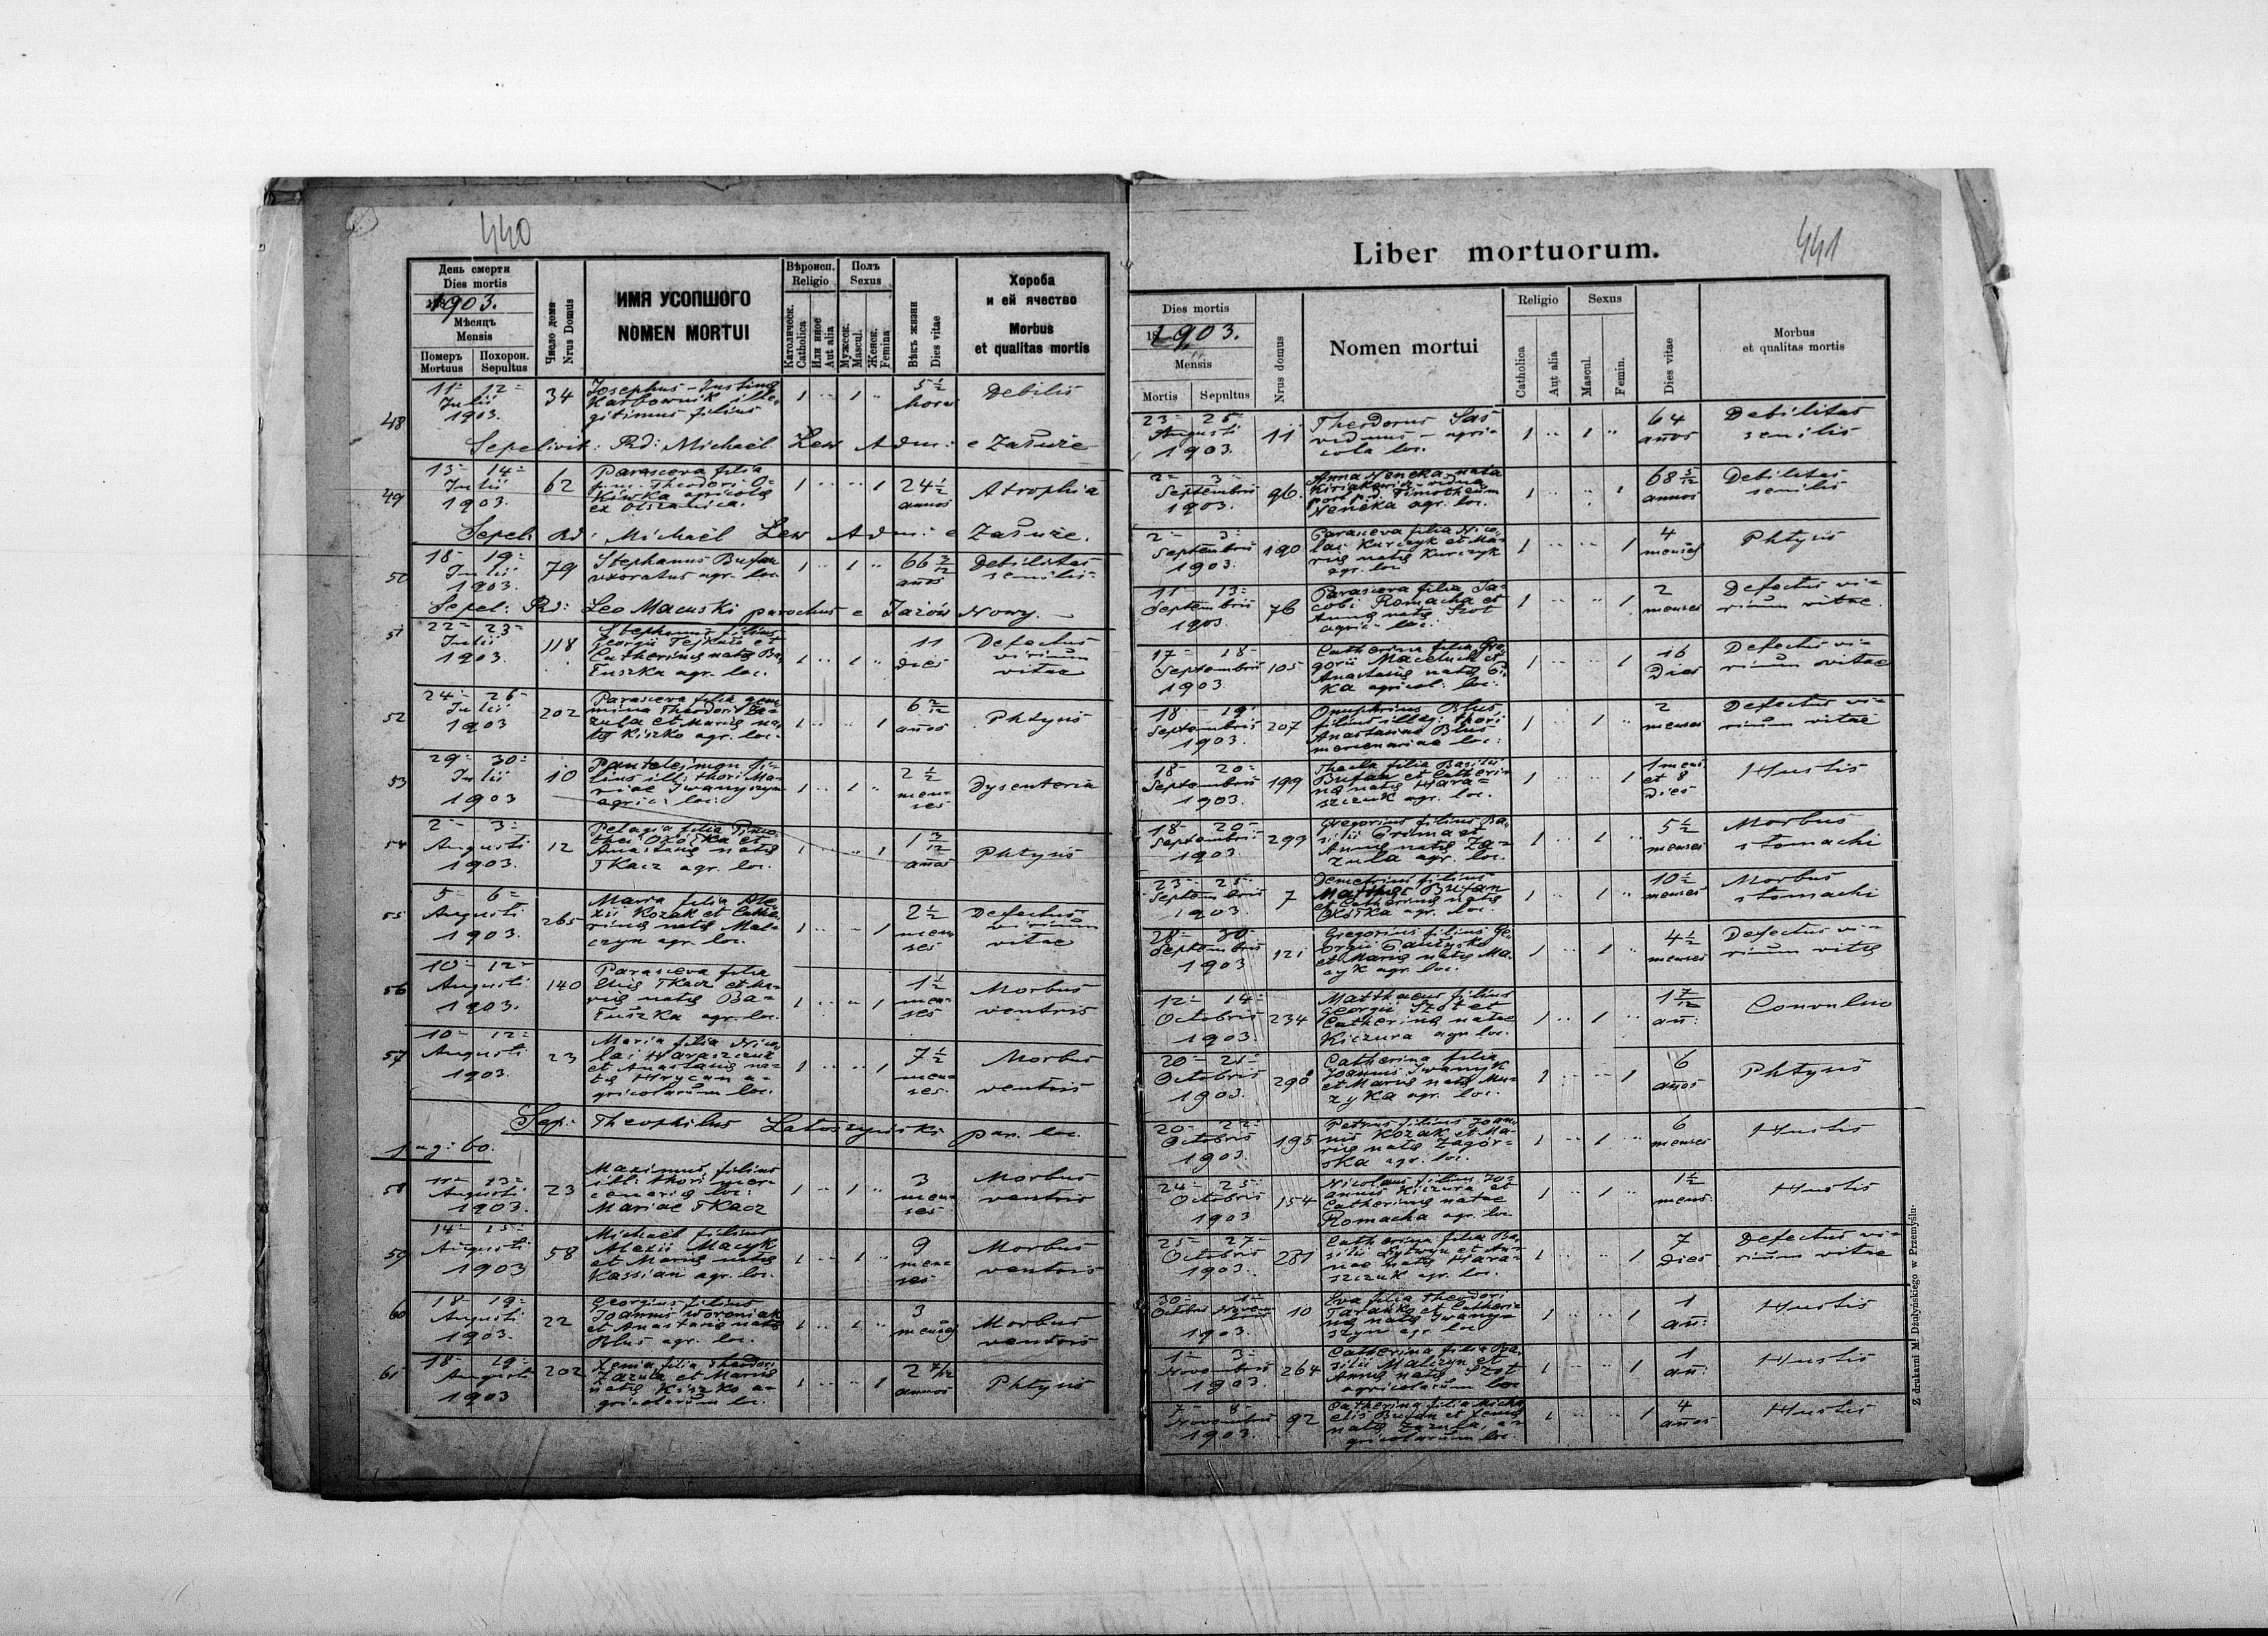 440
День смерти
Dies mortis
1903.
Мѣсяцъ
Mensis
Померъ Похорон.
Mortuus Sepultus
Число дома
Nrus Domus
ИМЯ УСОПШОГО
NOMEN MORTUI
Вѣроисп.
Religio
Католическ.
Catholica
Или иное
Aut alia
Полъ
Sexus
Мужеск.
Mascul.
Женск.
Femina
Вѣкъ жизни
Dies vitae
Хороба
и ей ячество
Morbus
et qualitas mortis
48
11 12
Julii
1903.
34
Josephus-Justinus
Karbownik ille-
gitimus filius
1 1
5 1/2
horas
Debilis
Sepelivit: Rd: Michaël Lew Adm: e Załuże
49
13 14
Julii
1903.
62
Parasceva filia
p.m. Theodori O-
kiwka agricolę
ex Olszanica.
1 1
24 1/2
annos
Atrophia
Sepel: Rd: Michaël Lew Adm: e Załuże.
50
18 19
Julii
1903
79
Stephanus Bufan
uxoratus agr. loc.
1 1
66 3/12
años
Debilitas
senilis
Sepel: Rd: Leo Macuski parochus e Jazów Nowy.
51
22 23
Julii
1903.
118
Stephanus filius
Georgii
Catherinę natę Ba-
łuszka agr. loc.
1 1
11
dies
Defectus
virium
vitae
52
24 26
Julii
1903
202
Parasceva filia gem-
mina Theodori Za-
zula et Marię na-
tę Kiszko agr. loc.
1 1
6 2/12
años
Phtysis
53
29 30
Julii
1903
10
Pantelejmon fi-
lius ill: thori Ma-
riae Iwanyszyn
agric: loc:
1 1
2 1/2
men-
ses
Dysenteria
54
2 3
Augusti
1903.
12
Pelagia filia Timo-
thei et
Anastasię natę
Tkacz agr. loc.
1 1
1 3/12
años
Phtysis
55
5 6
Augusti
1903.
265
Maria filia Ale-
xii Kozak et Cathe-
rinę natę Mal-
czyn agr. loc.
1 1
2 1/2
men-
ses
Defectus
virium
vitae
56
10 12
Augusti
1903.
140
Parasceva filia
Elię Tkacz et Ma-
rię natę Ba-
łuszka agr. loc.
1 1
1 1/2
men-
ses
Morbus
ventris
57
10 12
Augusti
1903.
23
Maria filia Nico-
lai Haraszczuk
et Anastasię na-
tę Hrycan a-
gricolarum loc.
1 1
7 1/2
men-
ses
Morbus
ventris
Sep: Theophilus Latoszyński par. loc.
pag: 60.
58
11 13
Augusti
1903.
23
Maximus, filius
ill: thori mer-
cenarię loc:
Mariae Tkacz
1 1
3
men-
ses
Morbus
ventris
59
14 15
Augusti
1903
58
Michaël filius
Alexii Macyk
et Marię natę
Kassian agr. loc.
1 1
9
men-
ses
Morbus
ventris
60
18 19
Augusti
1903.
22
Georgius filius
Joannis Woreniak
et Anastasię natę
Blus agr. loc.
1 1
3
menses
Morbus
ventris
61
18 19
Augusti
1903
202
Xenia filia Theodori
Zazula et Marię
natę Kiszko a-
gricolarum loc.
1 1
2 4/12
annos
Phtysis
Liber mortuorum.
441
Dies mortis
1903.
Mensis
Mortis Sepultus
Nrus domus
Nomen mortui
Religio
Catholica
Aut alia
Sexus
Mascul.
Femin.
Dies vitae
Morbus
et qualitas mortis
23 25
Augusti
1903.
11
Theodorus Sas
viduus - agri-
cola loc.
1 1
64
años
Debilitas
senilis
2 3
Septembris
1903.
96.
Anna Heneka, nata
Kiriakowicz vidua
post p.d. Timotheum
Heneka agr. loc.
1 1
68 5/12
annos
Debilitas
senilis
2 3
Septembris
1903.
190
Parasceva filia Nico-
lai Kurczyk et Ma-
rię natę Kurczyk
agr. loc
1 1
4
menses
Phtysis
11 13
Septembris
1903
76
Parasceva filia Ja-
cobi Romacha et
Annę natę Szot
agric. loc.
1 1
2
menses
Defectus vi-
rium vitae.
17 18
Septembris
1903.
105
Catherina filia Gre-
gorii et
Anastasię natę
agricol: loc:
1 1
16
Dies
Defectus vi-
rium vitae
18 19
Septembris
1903.
207
Onuphrius Blus,
filius illeg: thori
Anastasiae Blus
mercenariae loc:
1 1
2
menses
Defectus vi-
rium vitae
18 20
Septembris
1903.
199
Thecla filia Basilii
Bufan et Catheri-
nę natę Hara-
szczuk agr. loc.
1 1
1 mens
et 8
Dies
Hustis
18 20
Septembris
1903.
299
Gregorius filius Ba-
silii et
Annę natę Za-
zula agr. loc.
1 1
5 1/2
menses
Morbus
stomachi
23 25
Septembris
1903.
7
Demetrius filius
Bufan
et Catherinę natę
agr. loc.
1 1
10 1/2
menses
Morbus
stomachi
28 30
Septembris
1903
121
Gregorius filius Ge-
orgii
et Marię natę Ma-
cyk agr. loc.
1 1
4 1/2
menses
Defectus vi-
rium vitę
12 14
Octobris
1903.
234
Matthaeus filius
Georgii Szot et
Catherinę natae
Kiczura agr loc.
1 1
1 7/12
añ:
Convulsio
20 21
Octobris
1903.
290
Catherina filia
Joannis Iwanyk
et Marię natę Mu-
zyka agr. loc.
1 1
6
años
Phtysis
20 22
Octobris
1903.
195
Petrus filius Joan-
nis Kozak et Ma-
rię natę Zagór-
ska agr. loc.
1 1
6
menses
Hustis
24 25
Octobris
1903
154
Nicolaus filius Jo-
annis Kiczura et
Catherinę natae
Romacha agr. loc
1 1
1 1/2
mens:
Hustis
25 27
Octobris
1903.
281
Catherina filia Ba-
silii Lytwyn et An-
nae natę Hara-
szczuk agr. loc.
1 1
7
Dies
Defectus vi-
rium vitae
30 1
Octobris Novem-
bris
1903.
10
Eva filia Theodori
et Catheri-
nę natę Iwany-
szyn agr. loc
1 1
1
añ:
Hustis
1 3
Novembris
1903.
264
Catherina filia Ba-
silii Malczyn et
Annę natę Szot
agricolarum loc
1 1
1
añ:
Hustis
7 8
Novembris
1903.
92
Catherina filia Micha-
elis Bufan et Xenię
natę Zazula, a-
gricolarum loc.
1 1
4
años
Hustis
Z drukarni M. Dżułyńskiego w Przemyślu.